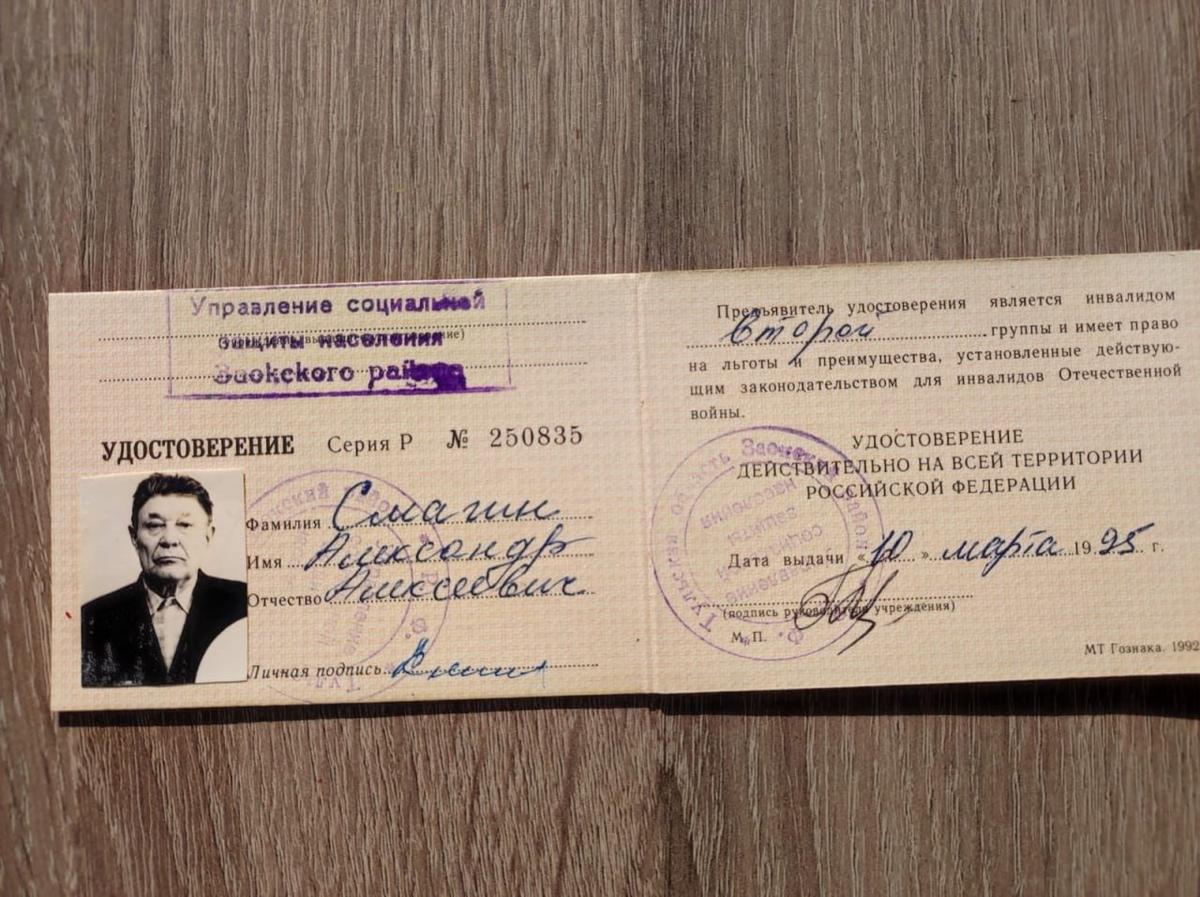 Управление социальной
защиты населения
Заокского района
УДОСТОВЕРЕНИЕ Серия Р № 250835
Фамилия Смагин
Имя Александр
Отчество Алексеевич
Личная подпись
Предъявитель удостоверения является инвалидом
Второй группы и имеет право
на льготы и преимущества, установленные действую-
щим законодательством для инвалидов Отечественной
войны.
УДОСТОВЕРЕНИЕ
ДЕЙСТВИТЕЛЬНО НА ВСЕЙ ТЕРРИТОРИИ
РОССИЙСКОЙ ФЕДЕРАЦИИ
Дата выдачи «10» марта 1995 г.
(подпись руководителя учреждения)
М. П.
МТ Гознака. 1992